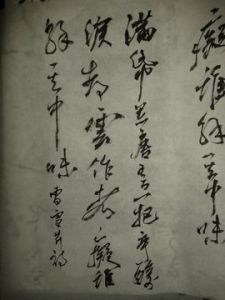 癡誰解其中味
滿帋荒唐言一把辛酸
淚都雲作者癡誰
解其中味 曹雪芹詩